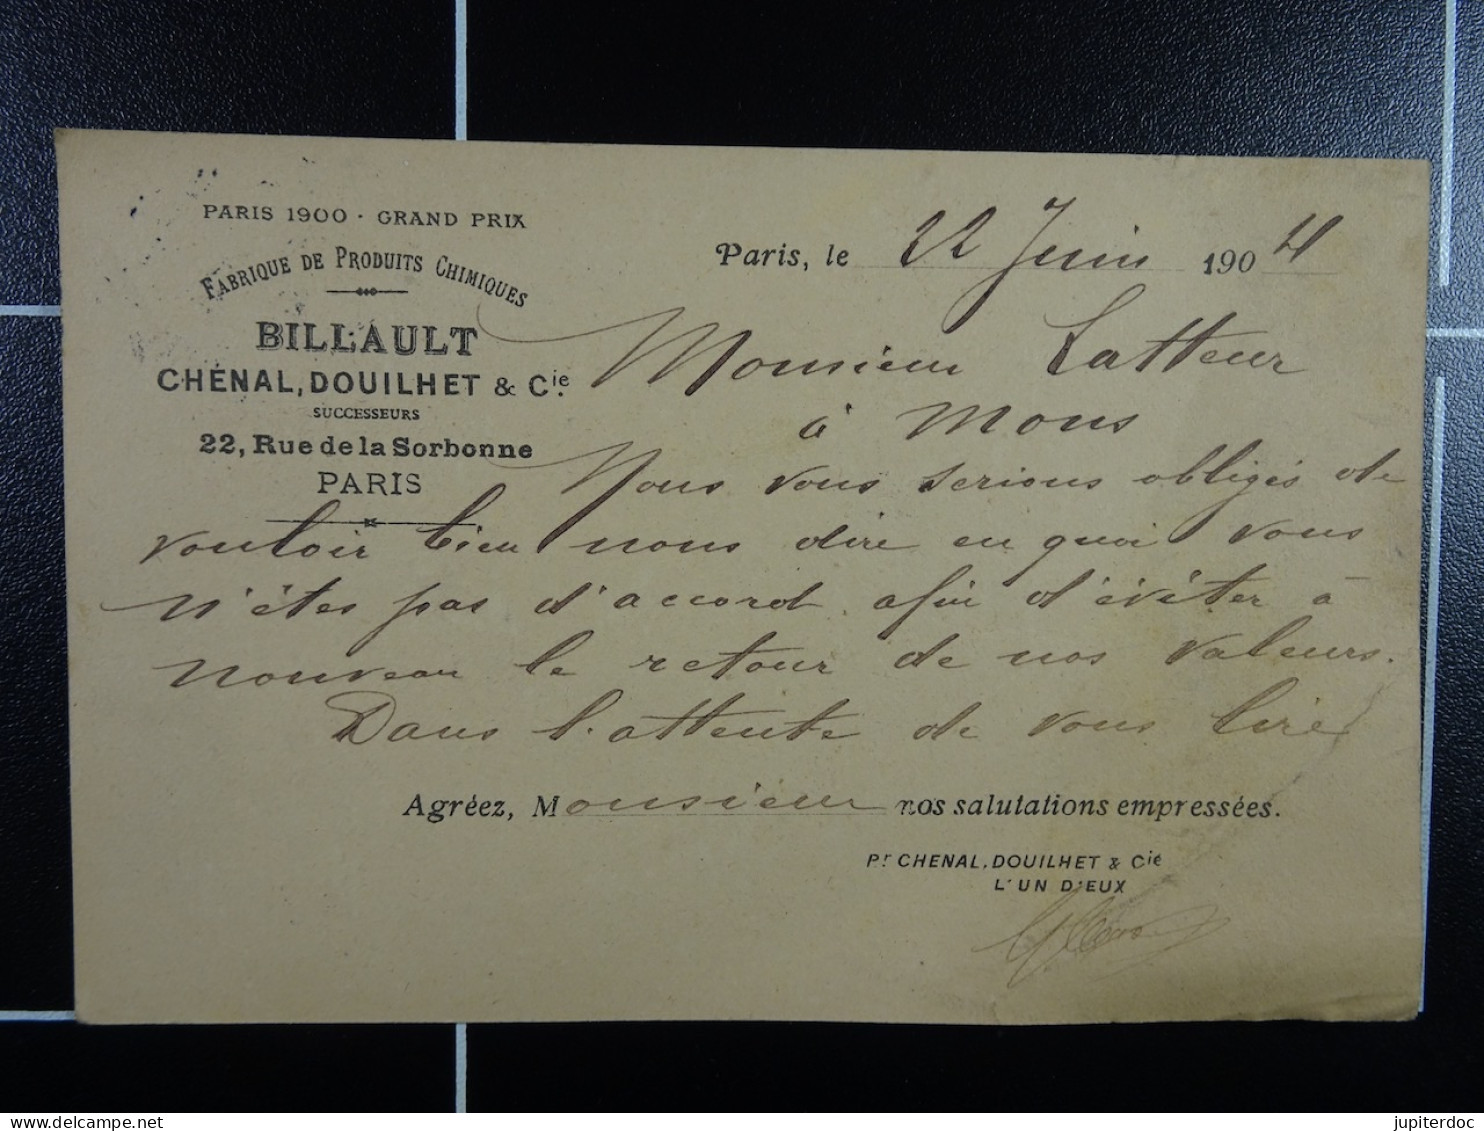 PARIS 1900 · GRAND PRIX
FABRIQUE DE PRODUITS CHIMIQUES
BILLAULT
CHENAL, DOUILHET & Cie.
SUCCESSEURS
22, Rue de la Sorbonne
PARIS
Paris, le 22 Juin 1904
Monsieur Latteur
à Mons
Nous vous serions obligés de
vouloir bien nous dire en quoi vous
n'êtes pas d'accord afin d'éviter à
nouveau le retour de nos valeurs.
Dans l'attente de vous lire
Agréez, Monsieur nos salutations empressées.
Pr CHENAL, DOUILHET & Cie
L'UN D'EUX
jupiterdoc
www.delcampe.net